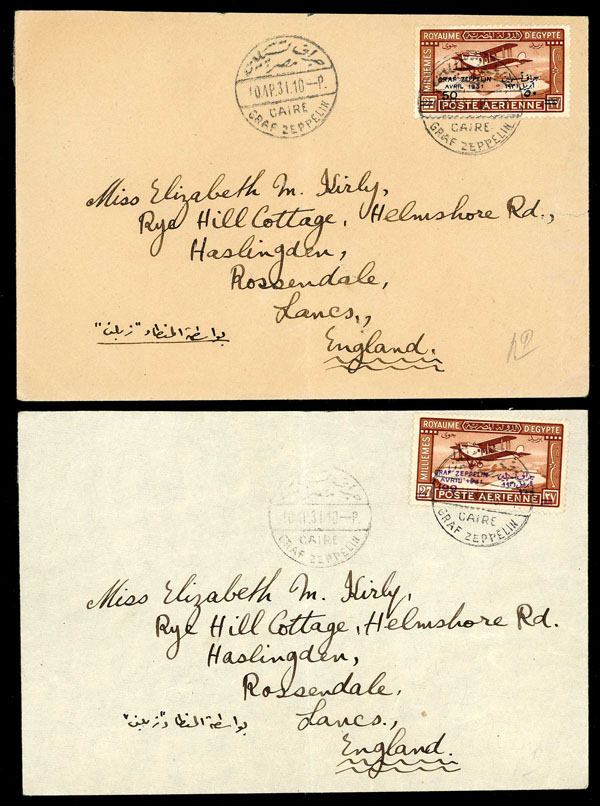 جراف تسبلين
مصر
10 AP.31.10-P.
CAIRE
GRAF ZEPPELIN
ROYAUME D'EGYPTE
MILLIEMES
GRAF ZEPPELIN
AVRIL 1931
50
27
POSTE AÉRIENNE
CAIRE
GRAF ZEPPELIN
Miss Elizabeth M. Kirly,
Rye Hill Cottage, Helmshore Rd.,
Haslingden,
Rossendale,
Lancs.,
"بواسطة المنطاد "زبلن
England.
ROYAUME D'EGYPTE
MILLIEMES
GRAF ZEPPELIN
AVRIL 1931
100
27
٢٧
POSTE AÉRIENNE
CAIRE
GRAF ZEPPELIN
10 AP.31.10-P.
CAIRE
GRAF ZEPPELIN
Miss Elizabeth M. Kirly,
Rye Hill Cottage, Helmshore Rd.
Haslingden,
Rossendale,
"بواسطة المنطاد "زبلن
Lancs.,
England.